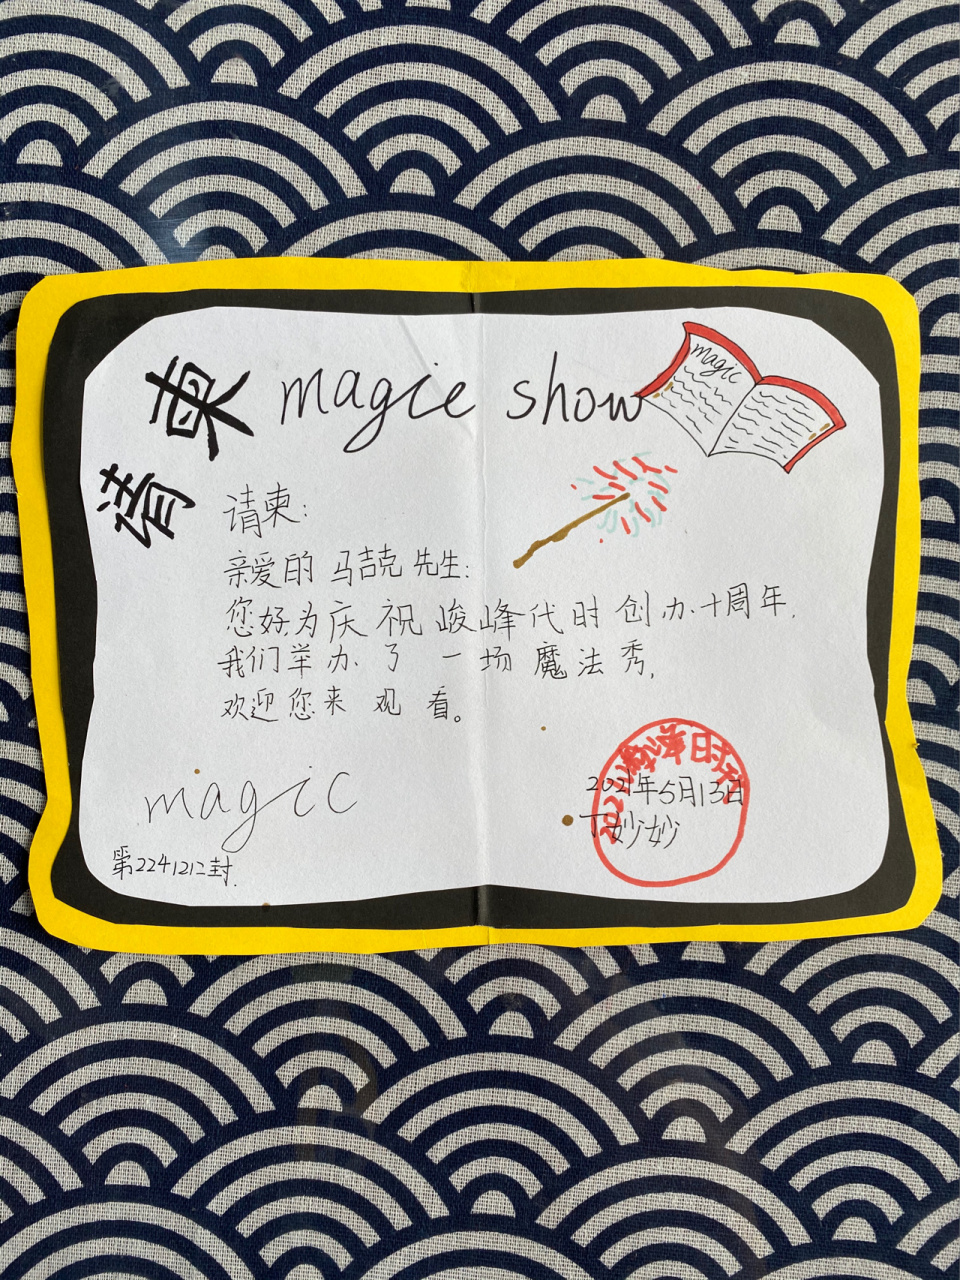 请柬
magic show
magic
请柬:
亲爱的马吉克先生:
您好,为庆祝峻峰代时创办十周年,
我们举办了一场魔法秀,
欢迎您来观看。
magic
2021年5月13日
丁妙妙
第2241212封.